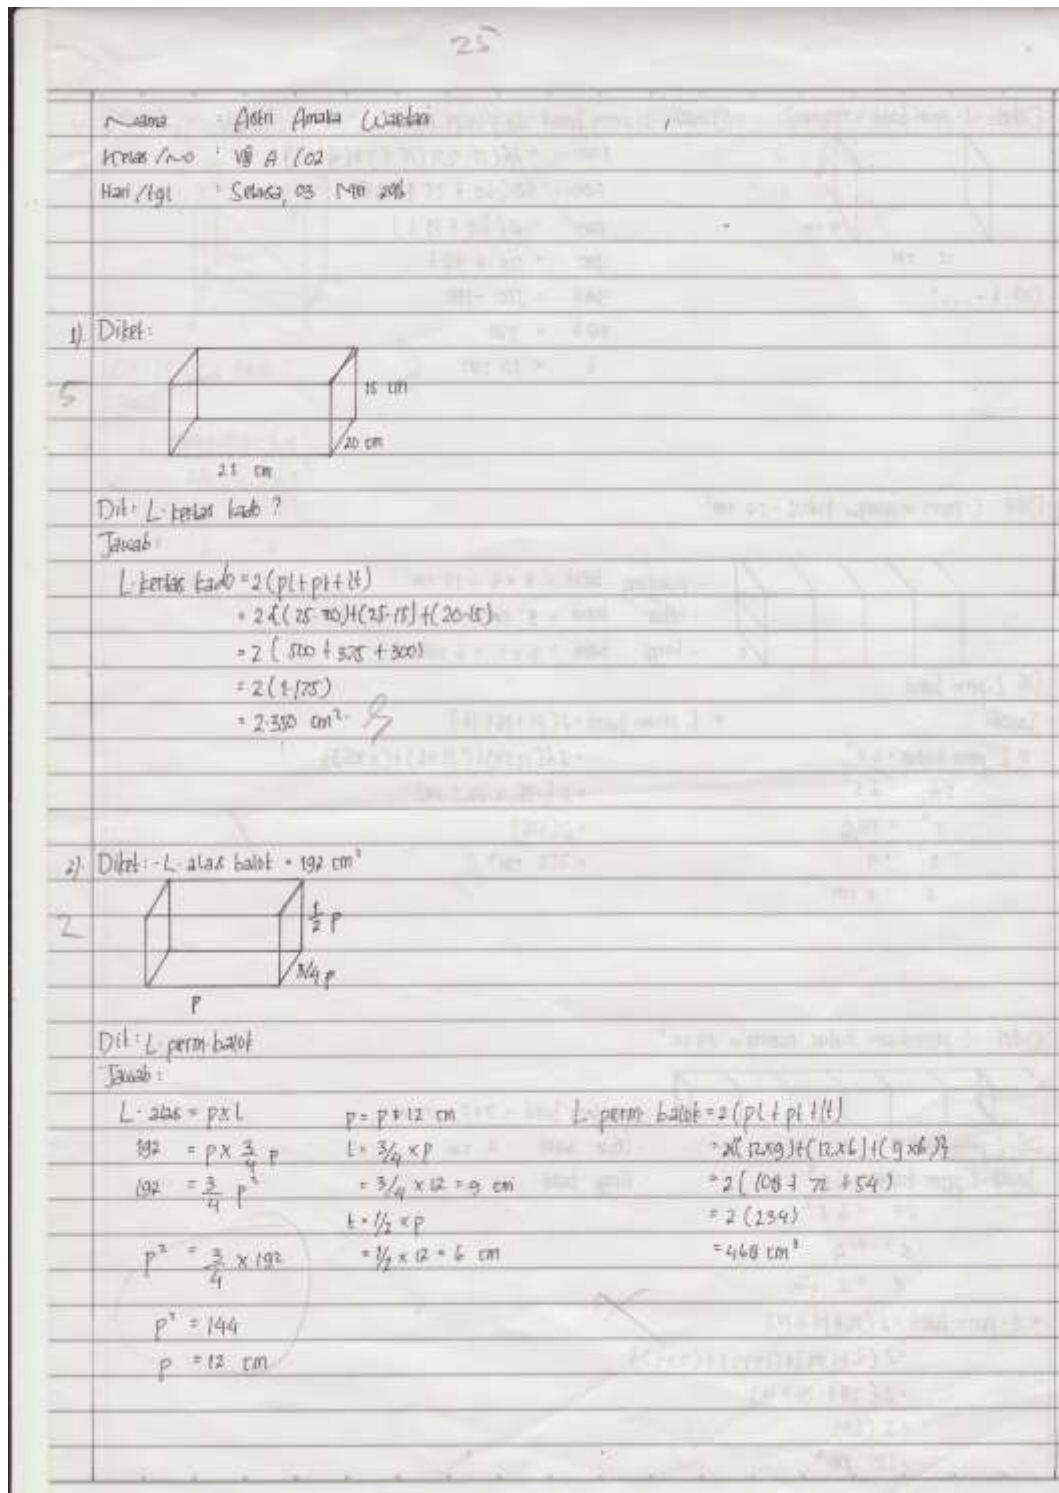 25
Nama : Astri Amalia Wardani
Kelas/No : VIII A / 02
Hari/tgl : Selasa, 03 Mei 2016
1). Diket:
5
15 cm
20 cm
25 cm
Dit: L. kertas kado ?
Jawab:
L. kertas kado = 2(pl+pt+lt)
= 2{(25·20)+(25·15)+(20·15)
= 2(500+375+300)
= 2(1.175)
= 2.350 cm²
2). Diket: - L. alas balok = 192 cm²
2
1/2 p
3/4 p
p
Dit: L. perm. balok
Jawab:
L. alas = p x l
192 = p x 3/4 p
192 = 3/4 p²
p² = 3/4 x 192
p² = 144
p = 12 cm
p = p = 12 cm
l = 3/4 x p
= 3/4 x 12 = 9 cm
t = 1/2 x p
= 1/2 x 12 = 6 cm
L. perm. balok = 2(pl+pt+lt)
= 2{(12x9)+(12x6)+(9x6)}
= 2(108+72+54)
= 2(234)
= 468 cm²